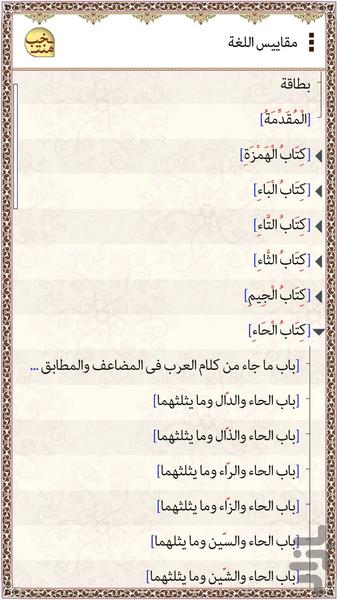 منتخب
مقاييس اللغة
بطاقة
[الْمُقَدِّمَةُ]
[كِتَابُ الْهَمْزَةِ]
[كِتَابُ الْبَاءِ]
[كِتَابُ التَّاءِ]
[كِتَابُ الثَّاءِ]
[كِتَابُ الْجِيمِ]
[كِتَابُ الْحَاءِ]
[باب ما جاء من كلام العرب فى المضاعف والمطابق ...
[باب الحاء والدّال وما يثلثهما]
[باب الحاء والذّال وما يثلثهما]
[باب الحاء والرّاء وما يثلثهما]
[باب الحاء والزّاء وما يثلثهما]
[باب الحاء والسّين وما يثلهما]
[باب الحاء والشّين وما يثلثهما]
بازار